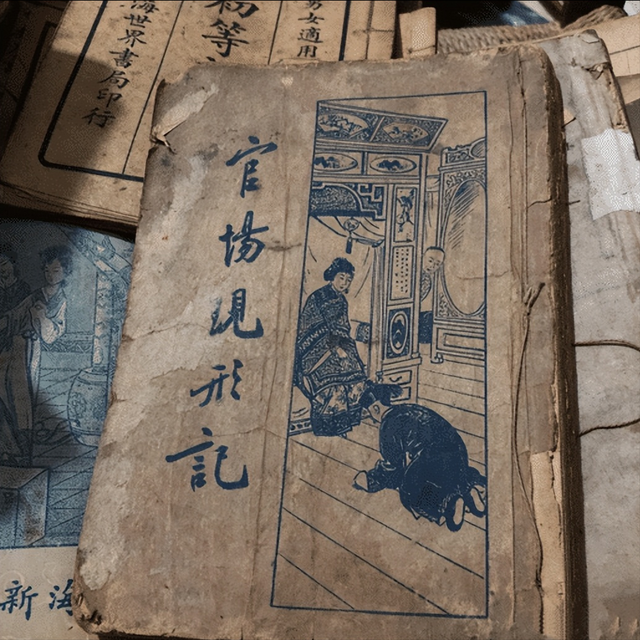 官场現形記
初等
男女適用
海世界書局印行
新海